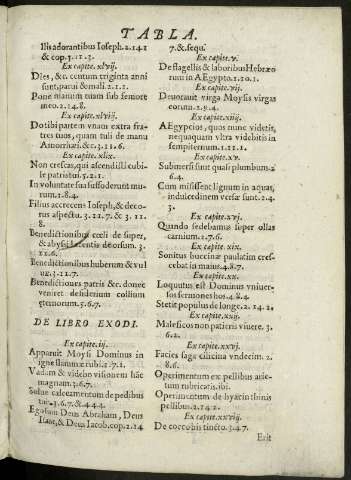 TABLA.
Illi adorantibus Ioseph. 2.14.1
& cop. 3.11.3.
Ex capite. xlvij.
Dies, &c. centum triginta anni
sunt, parui & mali. 2.1.1.
Pone manum tuam sub femore
meo. 2.14.8.
Ex capite. xlviij.
Do tibi partem vnam extra fra-
tres tuos, quam tuli de manu
Amorrhæi. &c. 3.11.6.
Ex capite. xlix.
Non crescas, quia ascendisti cubi-
le patris tui. 5.2.1.
In voluntate sua suffoderunt mu-
rum. 1.8.4.
Filius accrescens Ioseph, & deco-
rus aspectu. 3.11.7. & 3.11.
8.
Benedictionibus cœli de super,
& abyssi iacentis deorsum. 3.
11.6.
Benedictionibus huberum & vul
uæ. 3.11.7.
Benedictiones patris &c. donec
veniret desiderium collium
æternorum. 5.6.7.
DE LIBRO EXODI.
Ex capite. iij.
Apparuit Moysi Dominus in
igne flammæ rubi. 2.7.1.
Vadam & videbo visionem hãc
magnam. 3.6.7.
Solue calceamentum de pedibus
tuis. 3.6.7. & 4.4.4.
Ego sum Deus Abraham, Deus
Isaac, & Deus Iacob. cop. 2.14
7. & sequ.
Ex capite. v.
De flagellis & laboribus Hebræo
rum in AEgypto. 1.10.1.
Ex capite. vij.
Deuorauit virga Moysis virgas
eorum. 2.9.4.
Ex capite. xiiij.
AEgyptios, quos nunc videtis,
nequaquam vltra videbitis in
sempiternum. 1.11.1.
Ex capite. xv.
Submersi sunt quasi plumbum. 2
6.4.
Cum misisset lignum in aquas,
in dulcedinem versæ sunt. 2.4.
3.
Ex capite. xvj.
Quando sedebamus super ollas
carnium. 2.7.6.
Ex capite. xix.
Sonitus buccinæ paulatim cres-
cebat in maius. 4.8.7.
Ex capite. xx.
Loquutus est Dominus vniuer-
sos sermones hos. 4.8.4.
Stetit populus de longe. 2.14.2.
Ex capite. xxij.
Maleficos non patieris viuere. 3.
6.2.
Ex capite. xxvj.
Facies saga cilicina vndecim. 2.
8.6.
Operimentum ex pellibus arie-
tum rubricatis. ibi.
Operimentum de hyacinthinis
pellibus. 2.14.2.
Ex capite. xxviij.
De cocco bis tincto. 3.4.7.
Erit